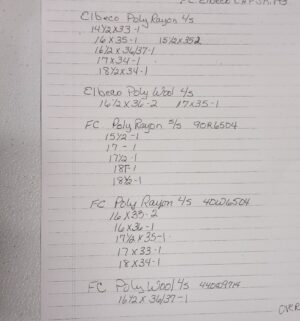 FC Elbeco
Elbeco Poly Rayon 4/s
14½ x 33 - 1
16 x 35 - 1 15½ x 35 2
16½ x 36/37 - 1
17 x 34 - 1
18½ x 34 - 1
Elbeco Poly Wool 4/s
16½ x 36 - 2 17 x 35 - 1
FC Poly Rayon S/s 90R6504
15½ - 1
17 - 1
17½ - 1
18 - 1
18½ - 1
FC Poly Rayon 4/s 40W6504
16 x 33 - 2
16 x 36 - 1
17½ x 35 - 1
17 x 33 - 1
18 x 34 - 1
FC Poly Wool 4/s
16½ x 36/37 - 1
OVER